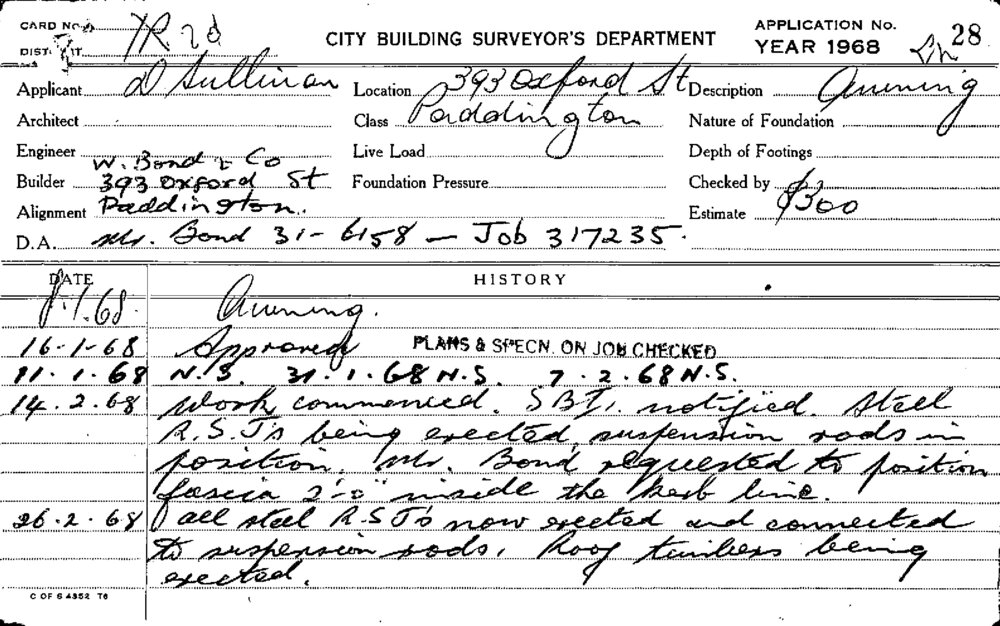 CARD No.
DIST. IR 2d
CITY BUILDING SURVEYOR'S DEPARTMENT
APPLICATION No. 28
YEAR 1968
Applicant D Sullivan
Location 393 Oxford St
Description Awning
Architect
Class Paddington
Nature of Foundation
Engineer W. Bond & Co
Live Load
Depth of Footings
Builder 393 Oxford St
Foundation Pressure
Checked by
Alignment Paddington.
Estimate $300
D.A. Mr. Bond 31-6158 — Job 317235.
DATE HISTORY
8.1.68. Awning.
16-1-68 Approved PLANS & SPECN. ON JOB CHECKED
11.1.68 N.S. 31.1.68 N.S. 7.2.68 N.S.
14.2.68 Work commenced. S B I. notified. Steel
R.S.J's being erected, suspension rods in
position. Mr. Bond requested to position
fascia 2'-0" inside the kerb line.
26.2.68 all steel R.S.J's now erected and connected
to suspension rods. Roof timbers being
erected.
C OF S 4352 T6